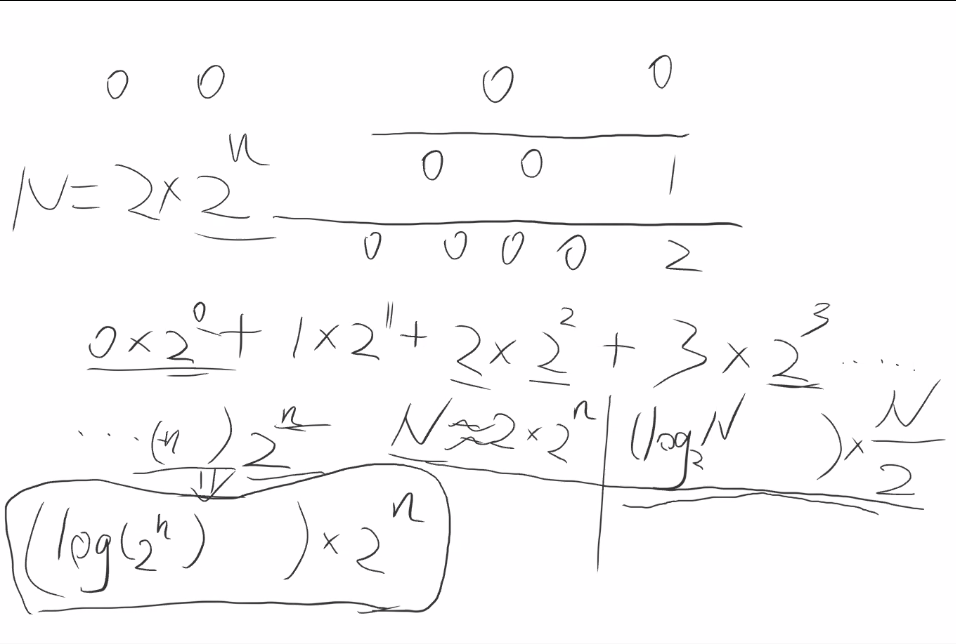 0 0 0 0
N=2×2^n 0 0 1
0 0 0 0 2
0×2^0+ 1×2^1+ 2×2^2 + 3×2^3 .....
....(n)2^n N≈2×2^n (log_2 N )×N/2
(log(2^n) )×2^n